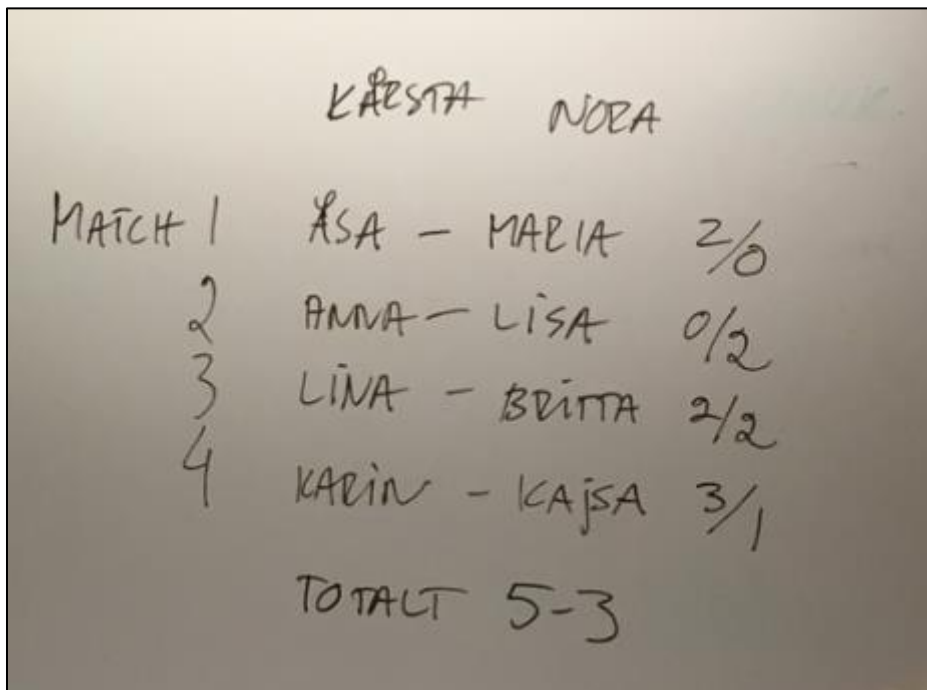 KÅRSTA NORA
MATCH 1 ÅSA - MARIA 2/0
2 ANNA - LISA 0/2
3 LINA - BRITTA 2/2
4 KARIN - KAJSA 3/1
TOTALT 5-3